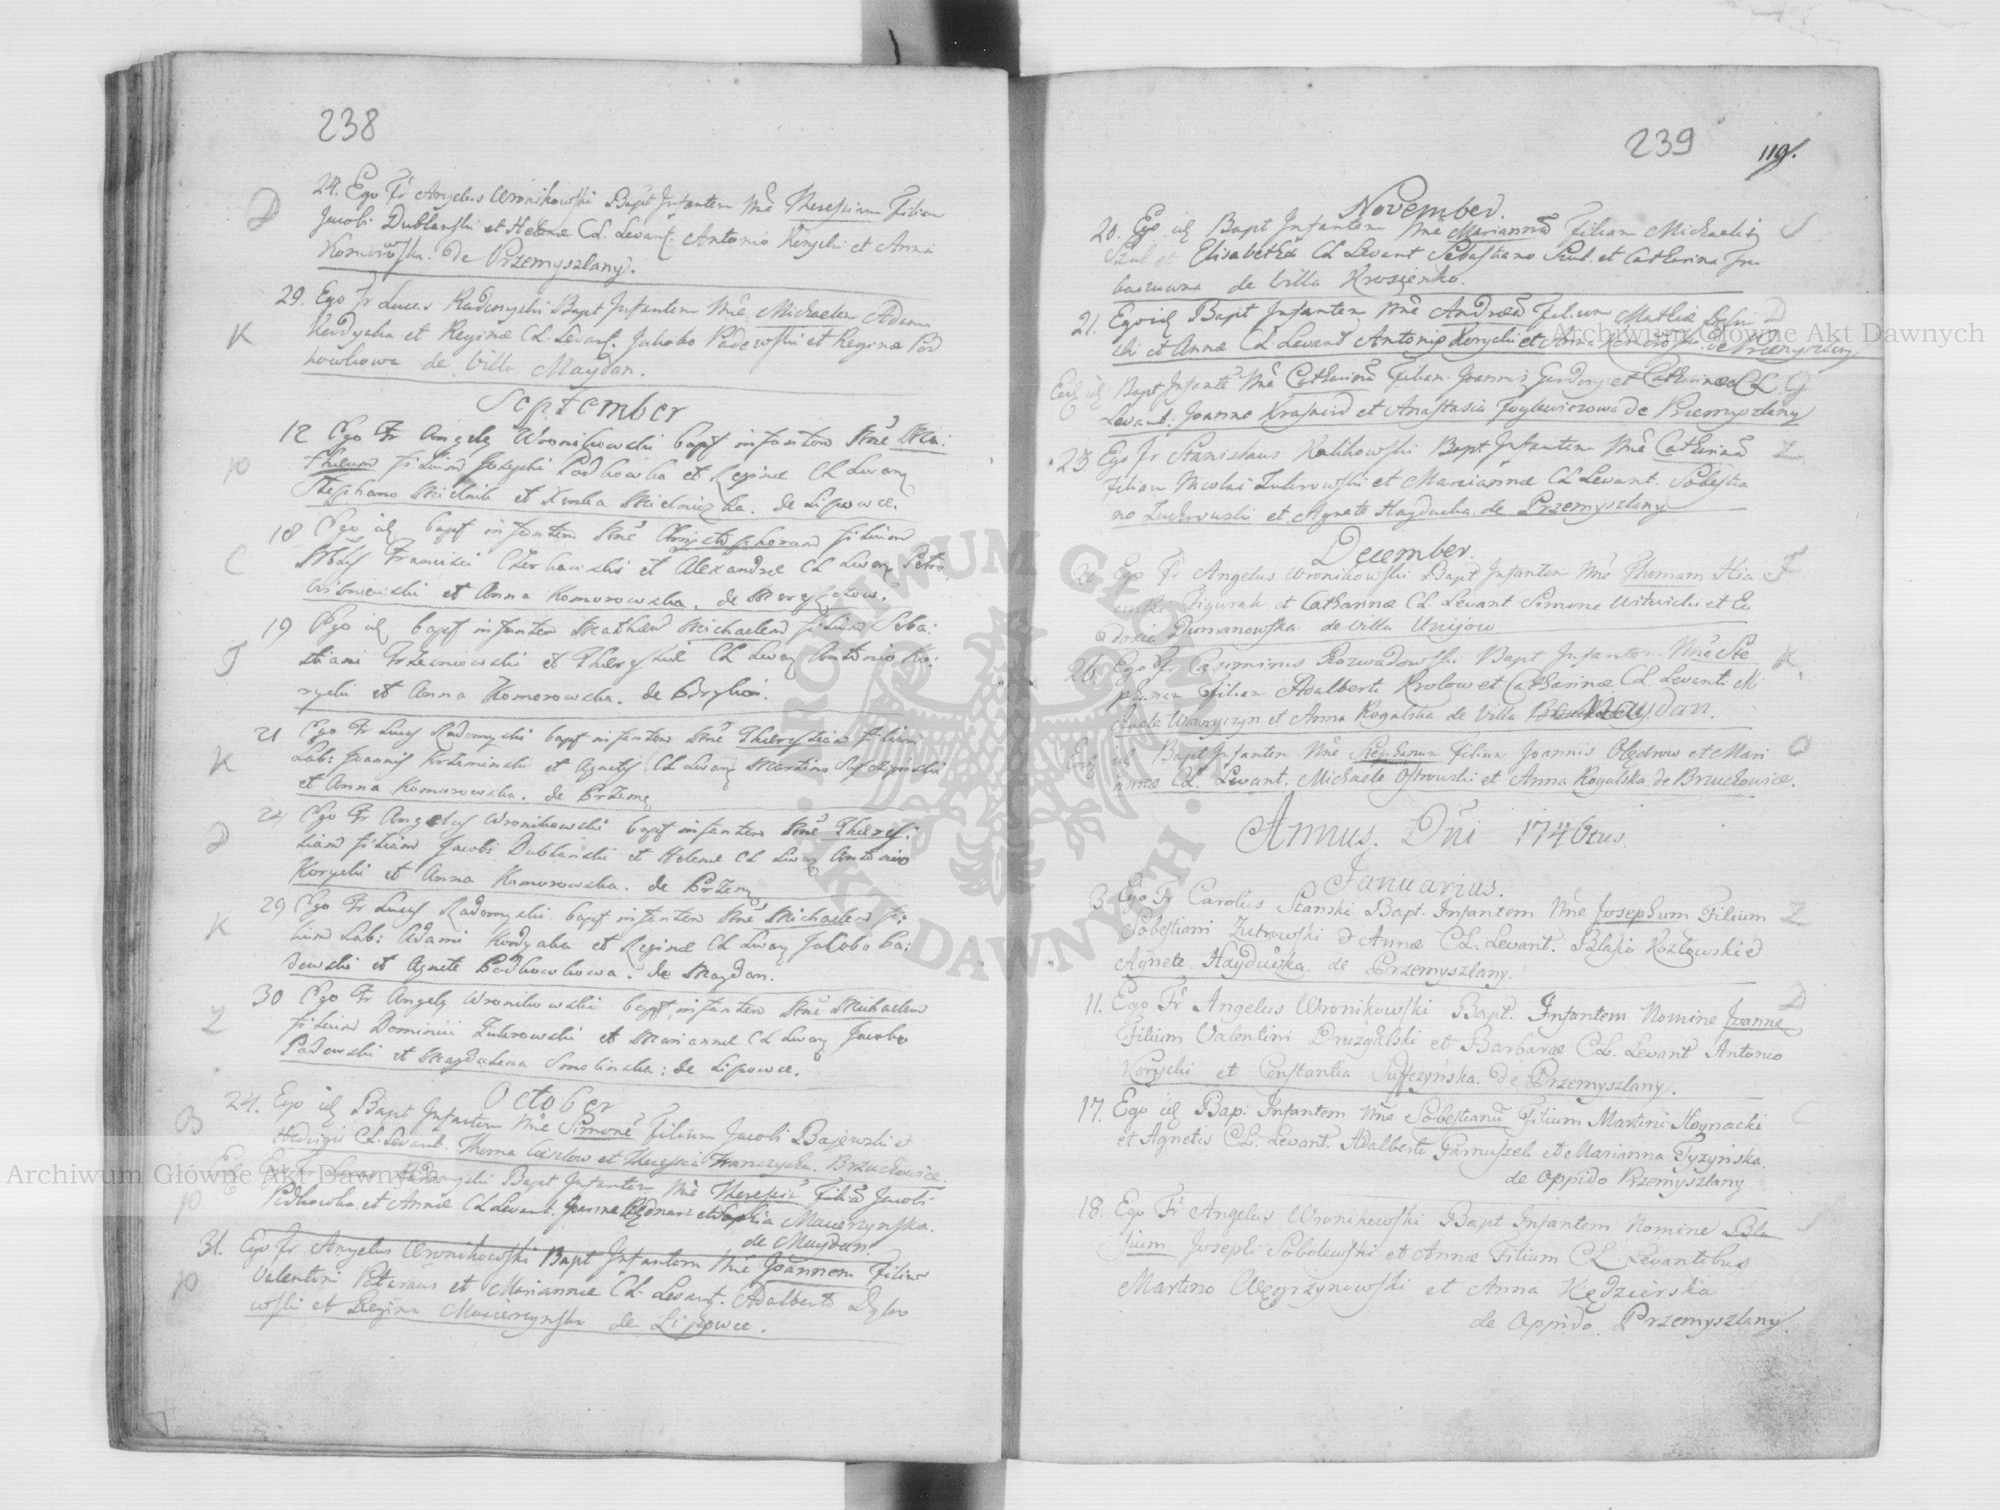 238
D
24. Ego Fr Angelus Wronikowski Bapt Infantem Nne Theresiam Filiam
Jacobi Dublanski et Helenæ CL. Levant. Antonio Korycki et Anna
Komorowska. de Przemyszlany.
K
29. Ego Fr Lucas Radomyski Bapt Infantem Nne Michaelem Adami
et Reginæ CL. Levant. Jakobo Padewski et Regina Pod
howkowa de Villa Maydan.
September
P
12 Ego Fr Angelq Wronikowski bapt infantem Nne Ma:
theum filium Josephi Podhowka et Reginæ CL Levan
Stephano Mielnik et de Lipowce.
C
18 Ego iq bapt infantem Nne Christopherum filium
Francisci et Alexandræ CL Levan Petro
Wisniewski et Anna Komorowska. de
T
19 Ego iq bapt infantem Matheum Michaelem filium Seba:
stiani Trzesniowski et Theressiæ CL Levan Antonio Ko:
rycki et Anna Komorowska. de
K
21 Ego Fr Lucas Radomyski bapt infantem Nne Theressiam filiam
Lab: Joannis Krzeminski et Agnetis CL Levan Martino
et Anna Komorowska. de Przemy
D
24 Ego Fr Angelus Wronikowski bapt infantem Nne Theres:
siam filiam Jacobi Dublanski et Helenæ CL Levan Antonio
Korycki et Anna Komorowska. de Przemy
K
29 Ego Fr Lucas Radomyski bapt infantem Nne Michaelem fi:
lium Lab: Adami Kordyaka et Reginæ CL Levan Jakobo Pa:
dewski et Agnete Podhowkowa. de Maydan.
Z
30 Ego Fr Angelq Wronikowski bapt infantem Nne Michaelem
filium Dominici Zukrowski et Mariannæ CL Levan Jacobo
Padewski et Magdalena Smolinska: de Lipowce.
October
B
24. Ego iq Bapt Infantem Nne Simone Filium Jacobi Bajewski et
Hedvigis CL. Levant. Thoma et Theressia Franczycka. Brzuchowice.
P
Bapt Infantem Nne Theressia Filia Jacobi
Podhowka et Annæ CL Levant. Joanne Bednarz et Sophia Macierzynska.
de Maydan.
P
31. Ego Fr Angelus Wronikowski Bapt Infantem Nne Joannem Filium
Valentini et Mariannæ CL. Levant. Adalberto
wski et Regina Macierzynska de Lipowce.
239
119.
November.
20. Ego iq Bapt Infantem Nne Marianna Filiam Michaelis
Szul et Elisabethæ CL Levant Sebastiano Szul et Catharina
de Villa Krosienko.
21. Ego iq Bapt Infantem Nne Andrea Filium Mathiæ
et Annæ CL Levant Antonio Korycki et Anna Komorowska de Przemyszlany
G
Bapt Infante Nne Catharina Filiam Joannis et Catharinæ CL
Levant. Joanne et Anastasia de Przemyszlany
Z
23 Ego Fr Stanislaus Kalikowski Bapt Infantem Nne Catharina
Filiam Nicolai Zukrowski et Mariannæ CL Levant. Sebastia
no Zuchowski et Agnete Hayducka de Przemyszlany
December.
F
Ego Fr Angelus Wronikowski Bapt Infantem Nne Thomam Hia
cinthi Figurak et Catharinæ CL. Levant Simone Witwicki et Eu
doxia Dumanowska de Villa Unijow
K
26. Ego Fr Casimirus Rozwadowski Bapt Infantem Nne Ste
phanum Filium Adalberti Krolow et Catharinæ CL Levanti Mi
chaele Wawryczyn et Anna Rogalska de Villa Maydan.
O
Bapt Infantem Nne Stephanum Filium Joannis Olędrow et Mari
annæ CL. Levant. Michaele Ostrowski et Anna Rogalska de Brzuchowice.
Annus. Dni 1746tus.
Januarius.
Z
3. Ego Fr Carolus Stanski Bapt. Infantem Nne Josephum Filium
Sebestiani Zukrowski et Annæ CL. Levant. Blasio Kozlowski et
Agnete Hayducka de Przemyszlany.
D
11. Ego Fr Angelus Wronikowski Bapt. Infantem Nomine Joanne
Filium Valentini Druzgalski et Barbaræ CL. Levant Antonio
Korycki et Constantia Suffczynska. de Przemyszlany.
17. Ego iq Bap: Infantem Nne Sebestianu Filium Martini Hoynacki
et Agnetis CL. Levant. Adalberti Garnuszek et Marianna Tyzynska.
de Oppido Przemyszlany
18. Ego Fr Angelus Wronikowski Bapt Infantem Nomine Bla
sium Josephi Sobolewski et Annæ Filium CL Levantibus
Martino Węgrzynowski et Anna Kędzierska
de Oppido Przemyszlany.
Archiwum Główne Akt Dawnych
Archiwum Główne Akt Dawnych
ARCHIWUM GŁÓWNE AKT DAWNYCH